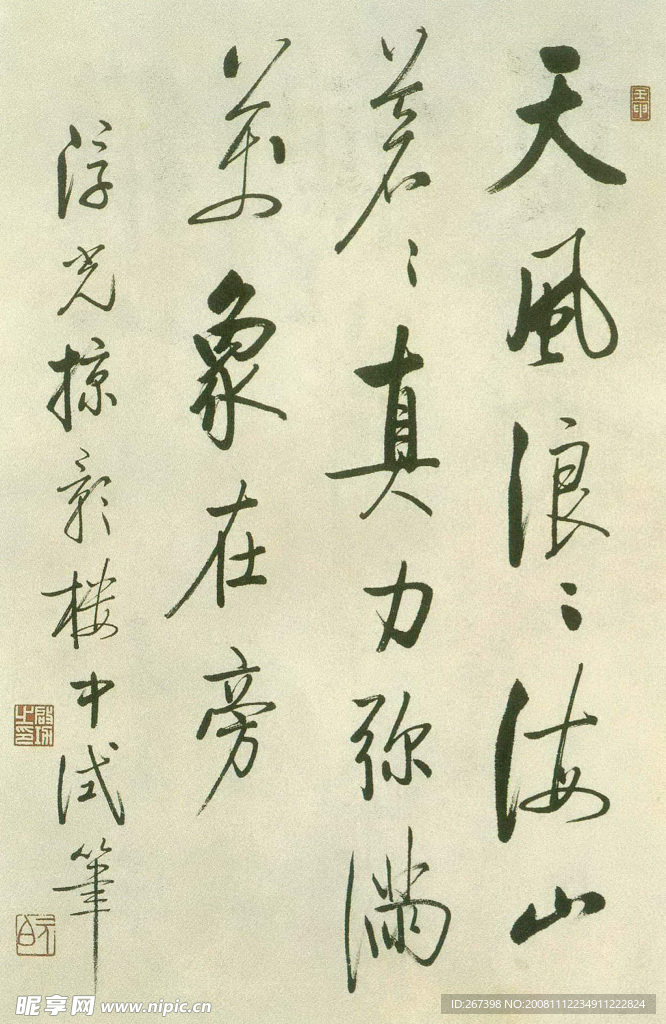 天風浪〻海山
蒼〻真力弥滿
萬象在旁
浮光掠影樓中試筆
啟功之印
元白
昵享网 www.nipic.cn
ID:267398 NO:20081112234911222824